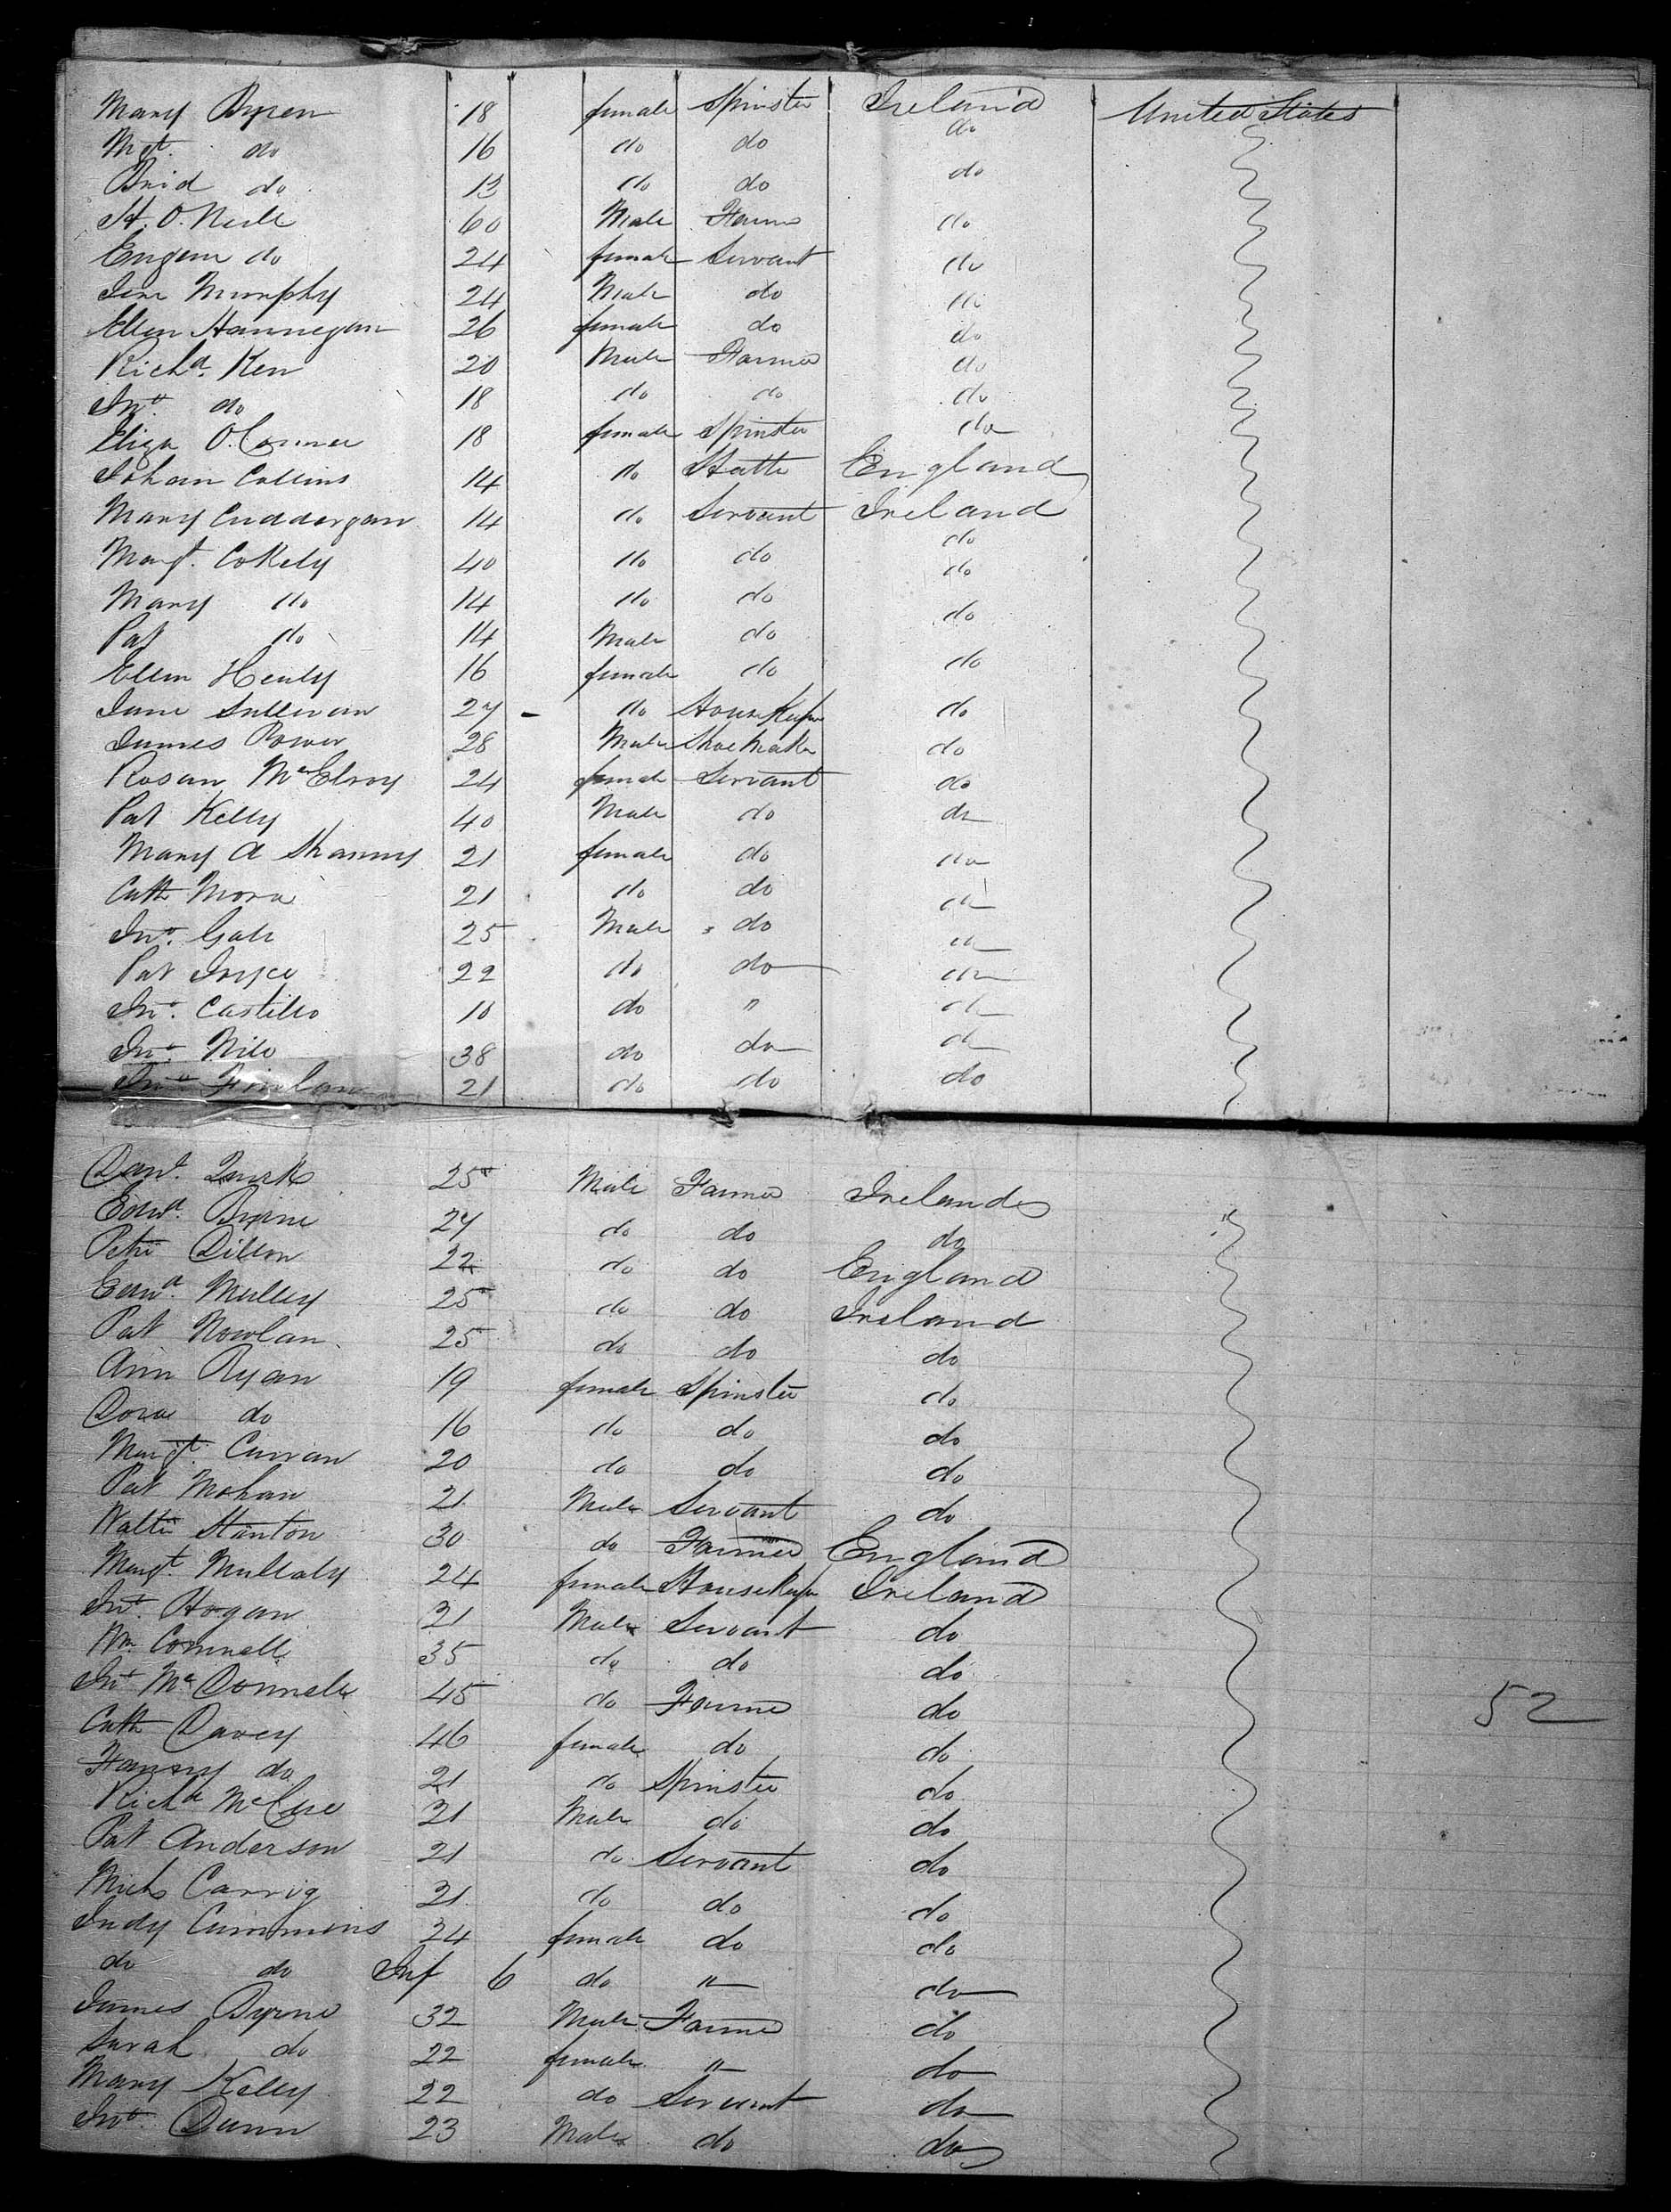 Mary Byren 18 female Spinster Ireland United States
Mgt. do 16 do do do
Brid do 13 do do do
H. O. Neill 60 Male Farmer do
Eugene do 24 female Servant do
Jere Murphy 24 Male do do
Ellen Hannegan 26 female do do
Richd. Ken 20 Male Farmer do
Jno. do 18 do do do
Eliza O. Connor 18 female Spinster do
Johan Collins 14 do England
Mary Cuddargan 14 do Servant Ireland
Margt. Cokely 40 do do do
Mary do 14 do do do
Pat do 14 Male do do
Ellen Healy 16 female do do
Jane Sullivan 27 - do Housekeeper do
James Power 28 Male Shoemaker do
Rosan McElroy 24 female Servant do
Pat Kelly 40 Male do do
Mary A 21 female do do
Cath Mora 21 do do do
Jno. Gale 25 Male do do
Pat Joyce 22 do do do
Jno. Castillo 10 do " do
Jno. 38 do do do
Jno. 21 do do do
Danl. Quirk 25 Male Farmer Ireland
Edwd. Byrne 27 do do do
Peter Dillon 22 do do England
Edwd. Mulley 25 do do Ireland
Pat Nowlan 25 do do do
Ann Ryan 19 female Spinster do
Dora do 16 do do do
Margt. Curran 20 do do do
Pat Mohan 21 Male Servant do
Walter Stanton 30 do Farmer England
Margt. Mullaly 24 female Housekeeper Ireland
Jno. Hogan 21 Male Servant do
Wm. Connell 35 do do do
Jno. McDonnell 45 do Farmer do 52
Cath Davey 46 female do do
Fanny do 21 do Spinster do
Richd 21 Male do do
Pat Anderson 21 do Servant do
Mich Carrig 21 do do do
Judy Cummins 24 female do do
do do Inf 6 do " do
James Byrne 32 Male Farmer do
Sarah do 22 female " do
Mary Kelly 22 do Servant do
Jno. Dunn 23 Male do do